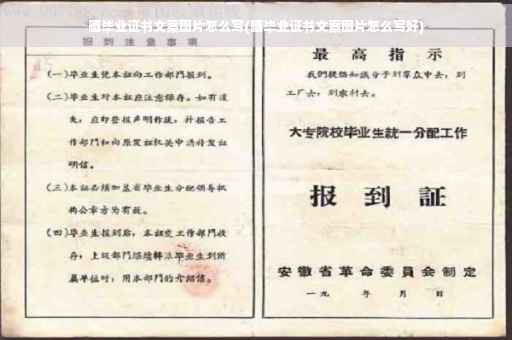 晒毕业证书文案图片怎么写(晒毕业证书文案图片怎么写好)
报到注意事项
(一)毕业生凭本证向工作部門报到。
(二)毕业生对本证应注意保存。如有遗
失,应即登报声明作废,并报告工
作部門和向原发证机关申請补发证
明信。
(三)本证必须加盖省毕业生分配領导机
构公章方为有效。
(四)毕业生报到后,本证交工作部門收
存;上級部門繼續轉派毕业生到所
属单位时,用本部門的介紹信。
最高指示
我們提倡知識分子到羣众中去,到
工厂去,到农村去。
大专院校毕业生統一分配工作
报到証
安徽省革命委員会制定
一九 年 月 日